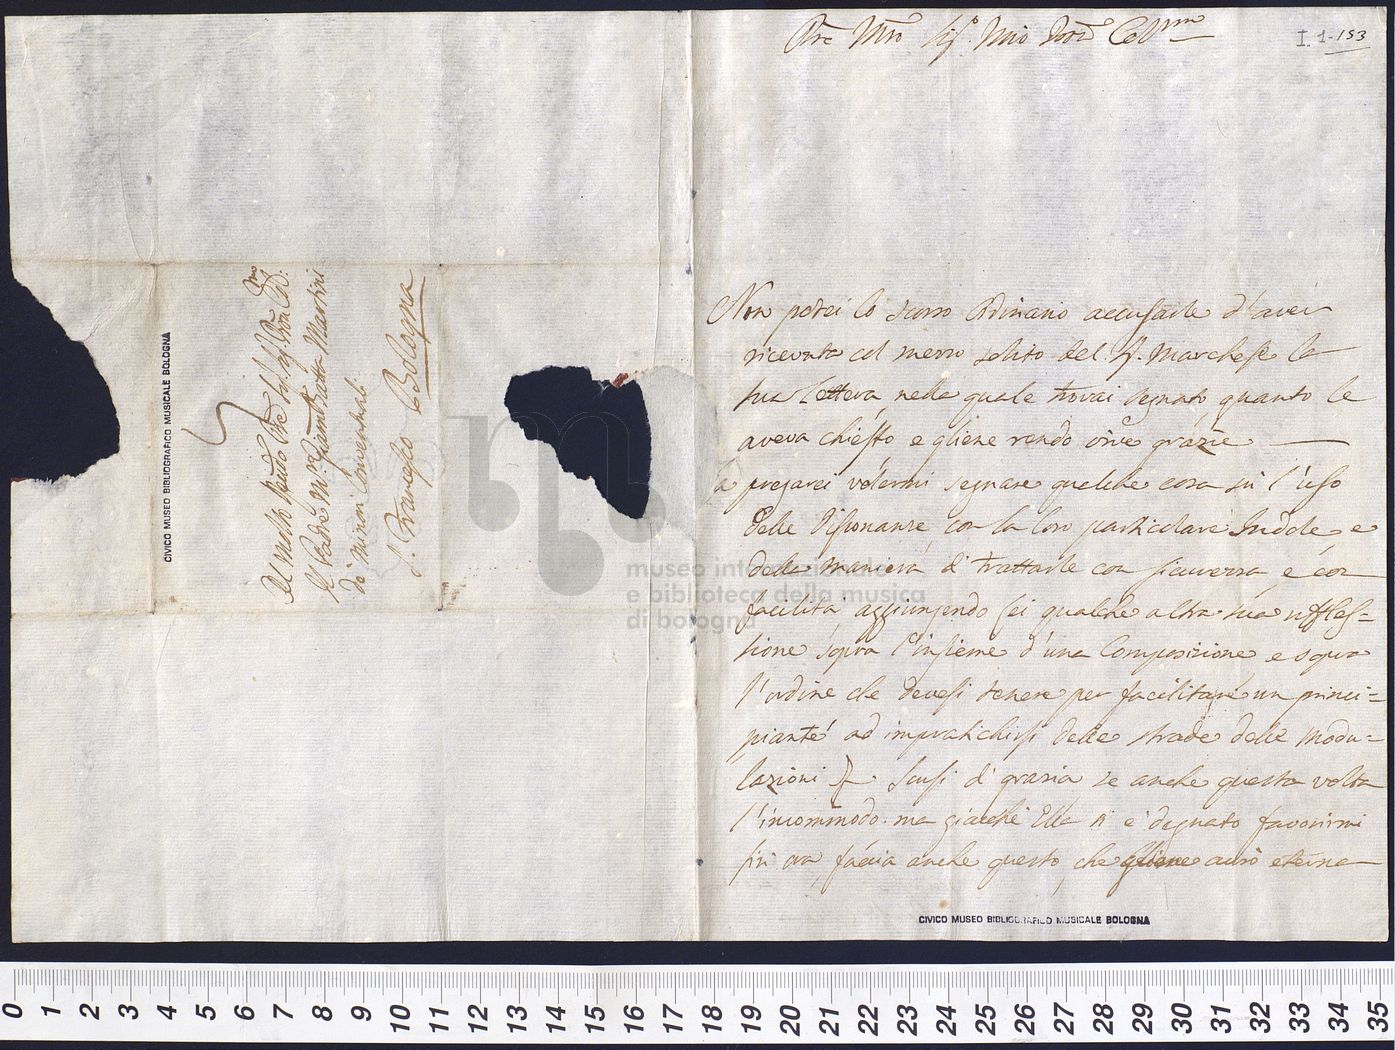 Al molto Revdo Pre del Sig. Pron Col:mo
Il Padre Mro Giam Batta Martini
de Minori Conventuali
S. Francesco Bologna
CIVICO MUSEO BIBLIOGRAFICO MUSICALE BOLOGNA
Pre Mro Sig.r Mio Pron Colmo
I. 1-153
Non potei lo scorso Ordinario accusarle d'aver
ricevuta col mezzo solito del S. Marchese la
sua Lettera nella quale trovai segnato quanto le
aveva chiesto e gliene rendo vive grazie
a pregarei volermi segnare qualche cosa su l'uso
delle Dissonanze, con la loro particolare Indole e
della maniera di trattarle con sicurezza e con
facilità, aggiungendo Lei qualche altra sua rifles=
sione sopra l'insieme d'una Composizione e sopra
l'ordine che devesi tenere per facilitare un princi=
piante ad impratichirsi delle strade delle modu=
lazioni. Scusi di grazia se anche questa volta
l'incommodo. ma giacchè Ella si è degnato favorirmi
sin ora, faccia anche questo, che gliene avrò eterna
museo internazionale
e biblioteca della musica
di bologna
CIVICO MUSEO BIBLIOGRAFICO MUSICALE BOLOGNA
0 1 2 3 4 5 6 7 8 9 10 11 12 13 14 15 16 17 18 19 20 21 22 23 24 25 26 27 28 29 30 31 32 33 34 35